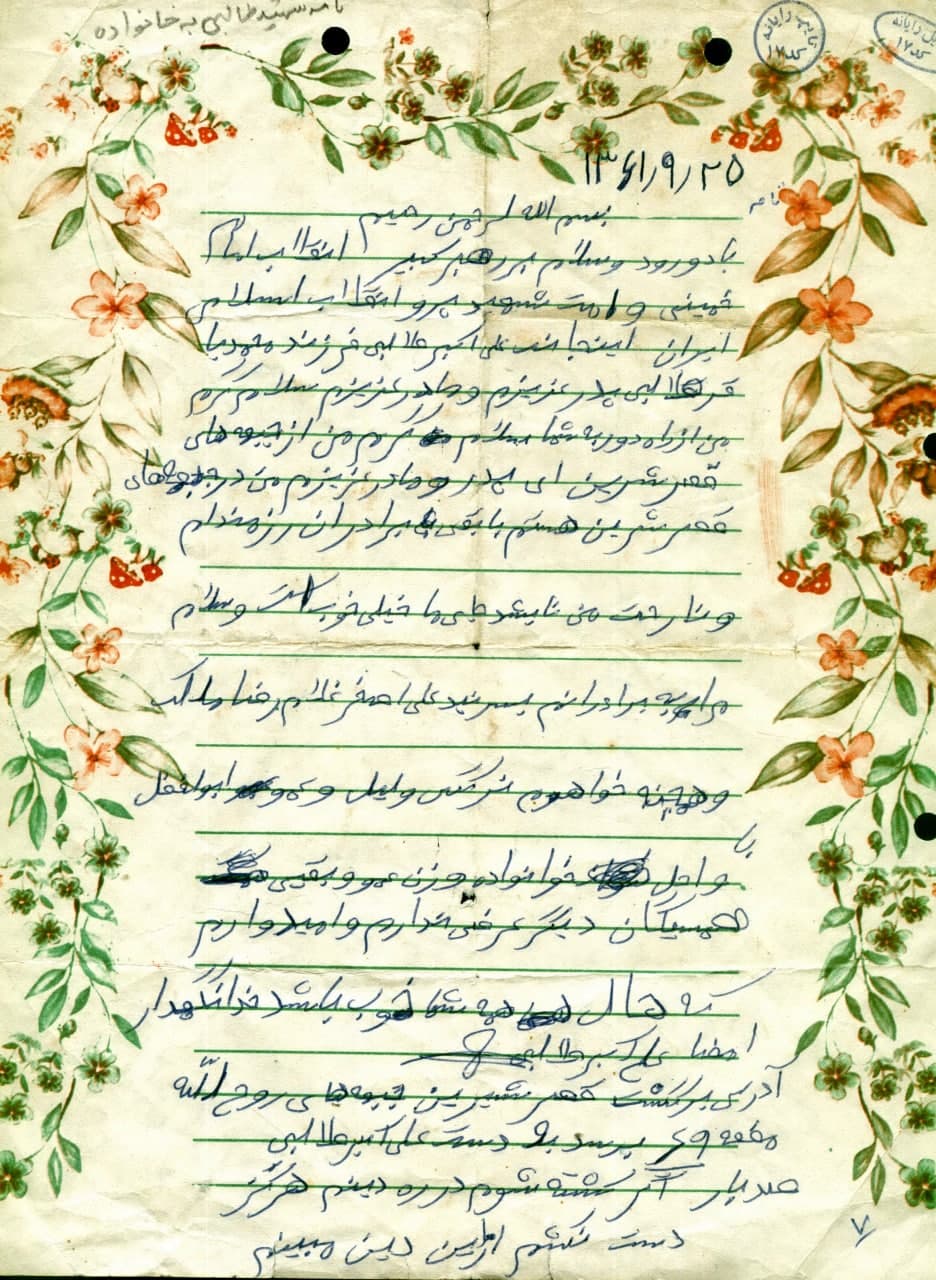 نامه شهید طالبی به خانواده
تایپ رایانه
کد ۱۷
رایانه
کد ۱۷
۱۳۶۱/۹/۲۵
نامه
بسم الله لرحمن رحیم
با دورود و سلام بر رهبر کبیر انقلاب امام
خمینی و امت شهید پرو انقلاب اسلامی
ایران اینجانب علی اکبر طالبی فرزند
طالبی پدر عزیزم و مادر عزیزم سلام گرم
من از راه دور به شما سلام گرم من از جبهه های
قصر شرین ای پدر و مادر عزیزم من در جبهه های
قصر شرین هستم با بقی برادران رزمندام
و نارحت من نایشد جای ما خیلی خوب است وسلام
مرا به برادرانم برسنید علی اصغر غلام رضا
و همچنه خواهرم نرگس و لیل و عمو ابولفضل
با
و اهل خوانواده وزن عمو و بقی
همسیگان دیگر عرضی ندارم و امیدوارم
که حال همه شما خوب باشد خدانگهدار
امضا علی اکبر طالبی
آدرس برگشت قصر شیرین جبهه های روح الله
برسد به دست علی اکبر طالبی
صدبار اگر کشته شوم در ره دینم هرگز
دست نکشم از این دین مبینم
۷